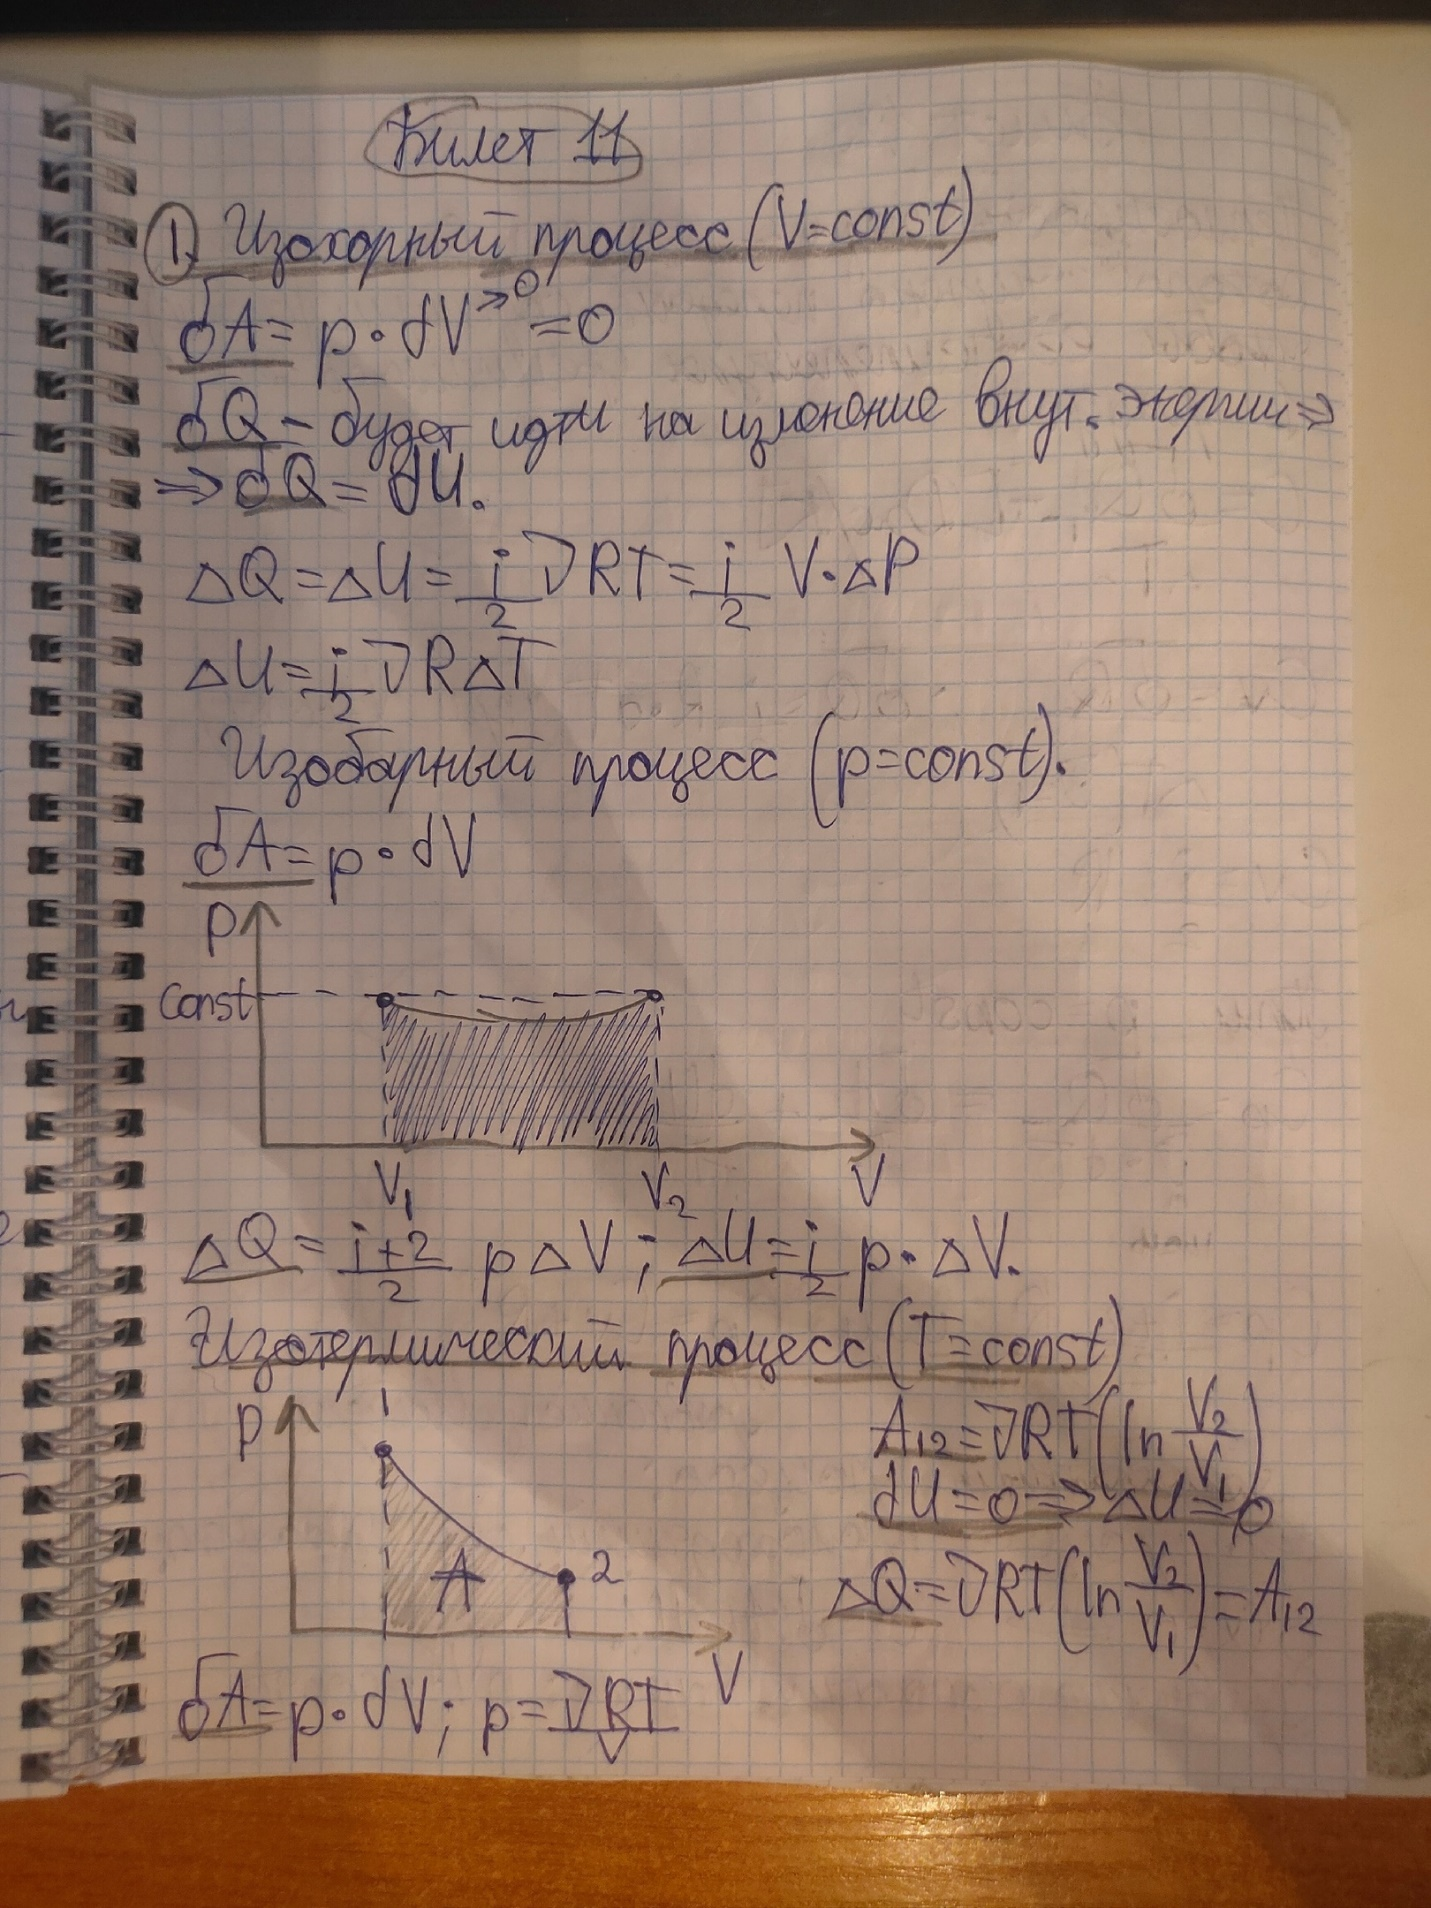 Билет 11
1. Изохорный процесс (V=const)
δA = p · dV→0 = 0
δQ – будет идти на изменение внут. энергии ⇒
⇒ δQ = dU.
ΔQ = ΔU = i/2 νRT = i/2 V·ΔP
ΔU = i/2 νRΔT
Изобарный процесс (p=const).
δA = p · dV
P
Const
V₁ V₂ V
ΔQ = i+2/2 pΔV; ΔU = i/2 p·ΔV.
Изотермический процесс (T=const)
P
A₁₂ = νRT (ln V₂/V₁)
dU = 0 ⇒ ΔU = 0
A 2
ΔQ = νRT (ln V₂/V₁) = A₁₂
V
δA = p · dV; p = νRT/V